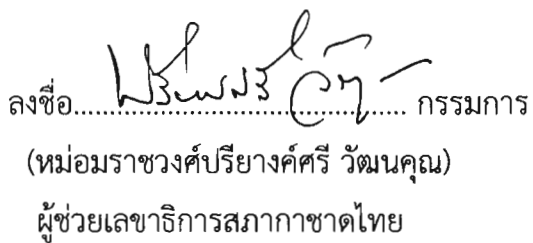 ลงชื่อ.................................................. กรรมการ
(หม่อมราชวงศ์ปรียางค์ศรี วัฒนคุณ)
ผู้ช่วยเลขาธิการสภากาชาดไทย